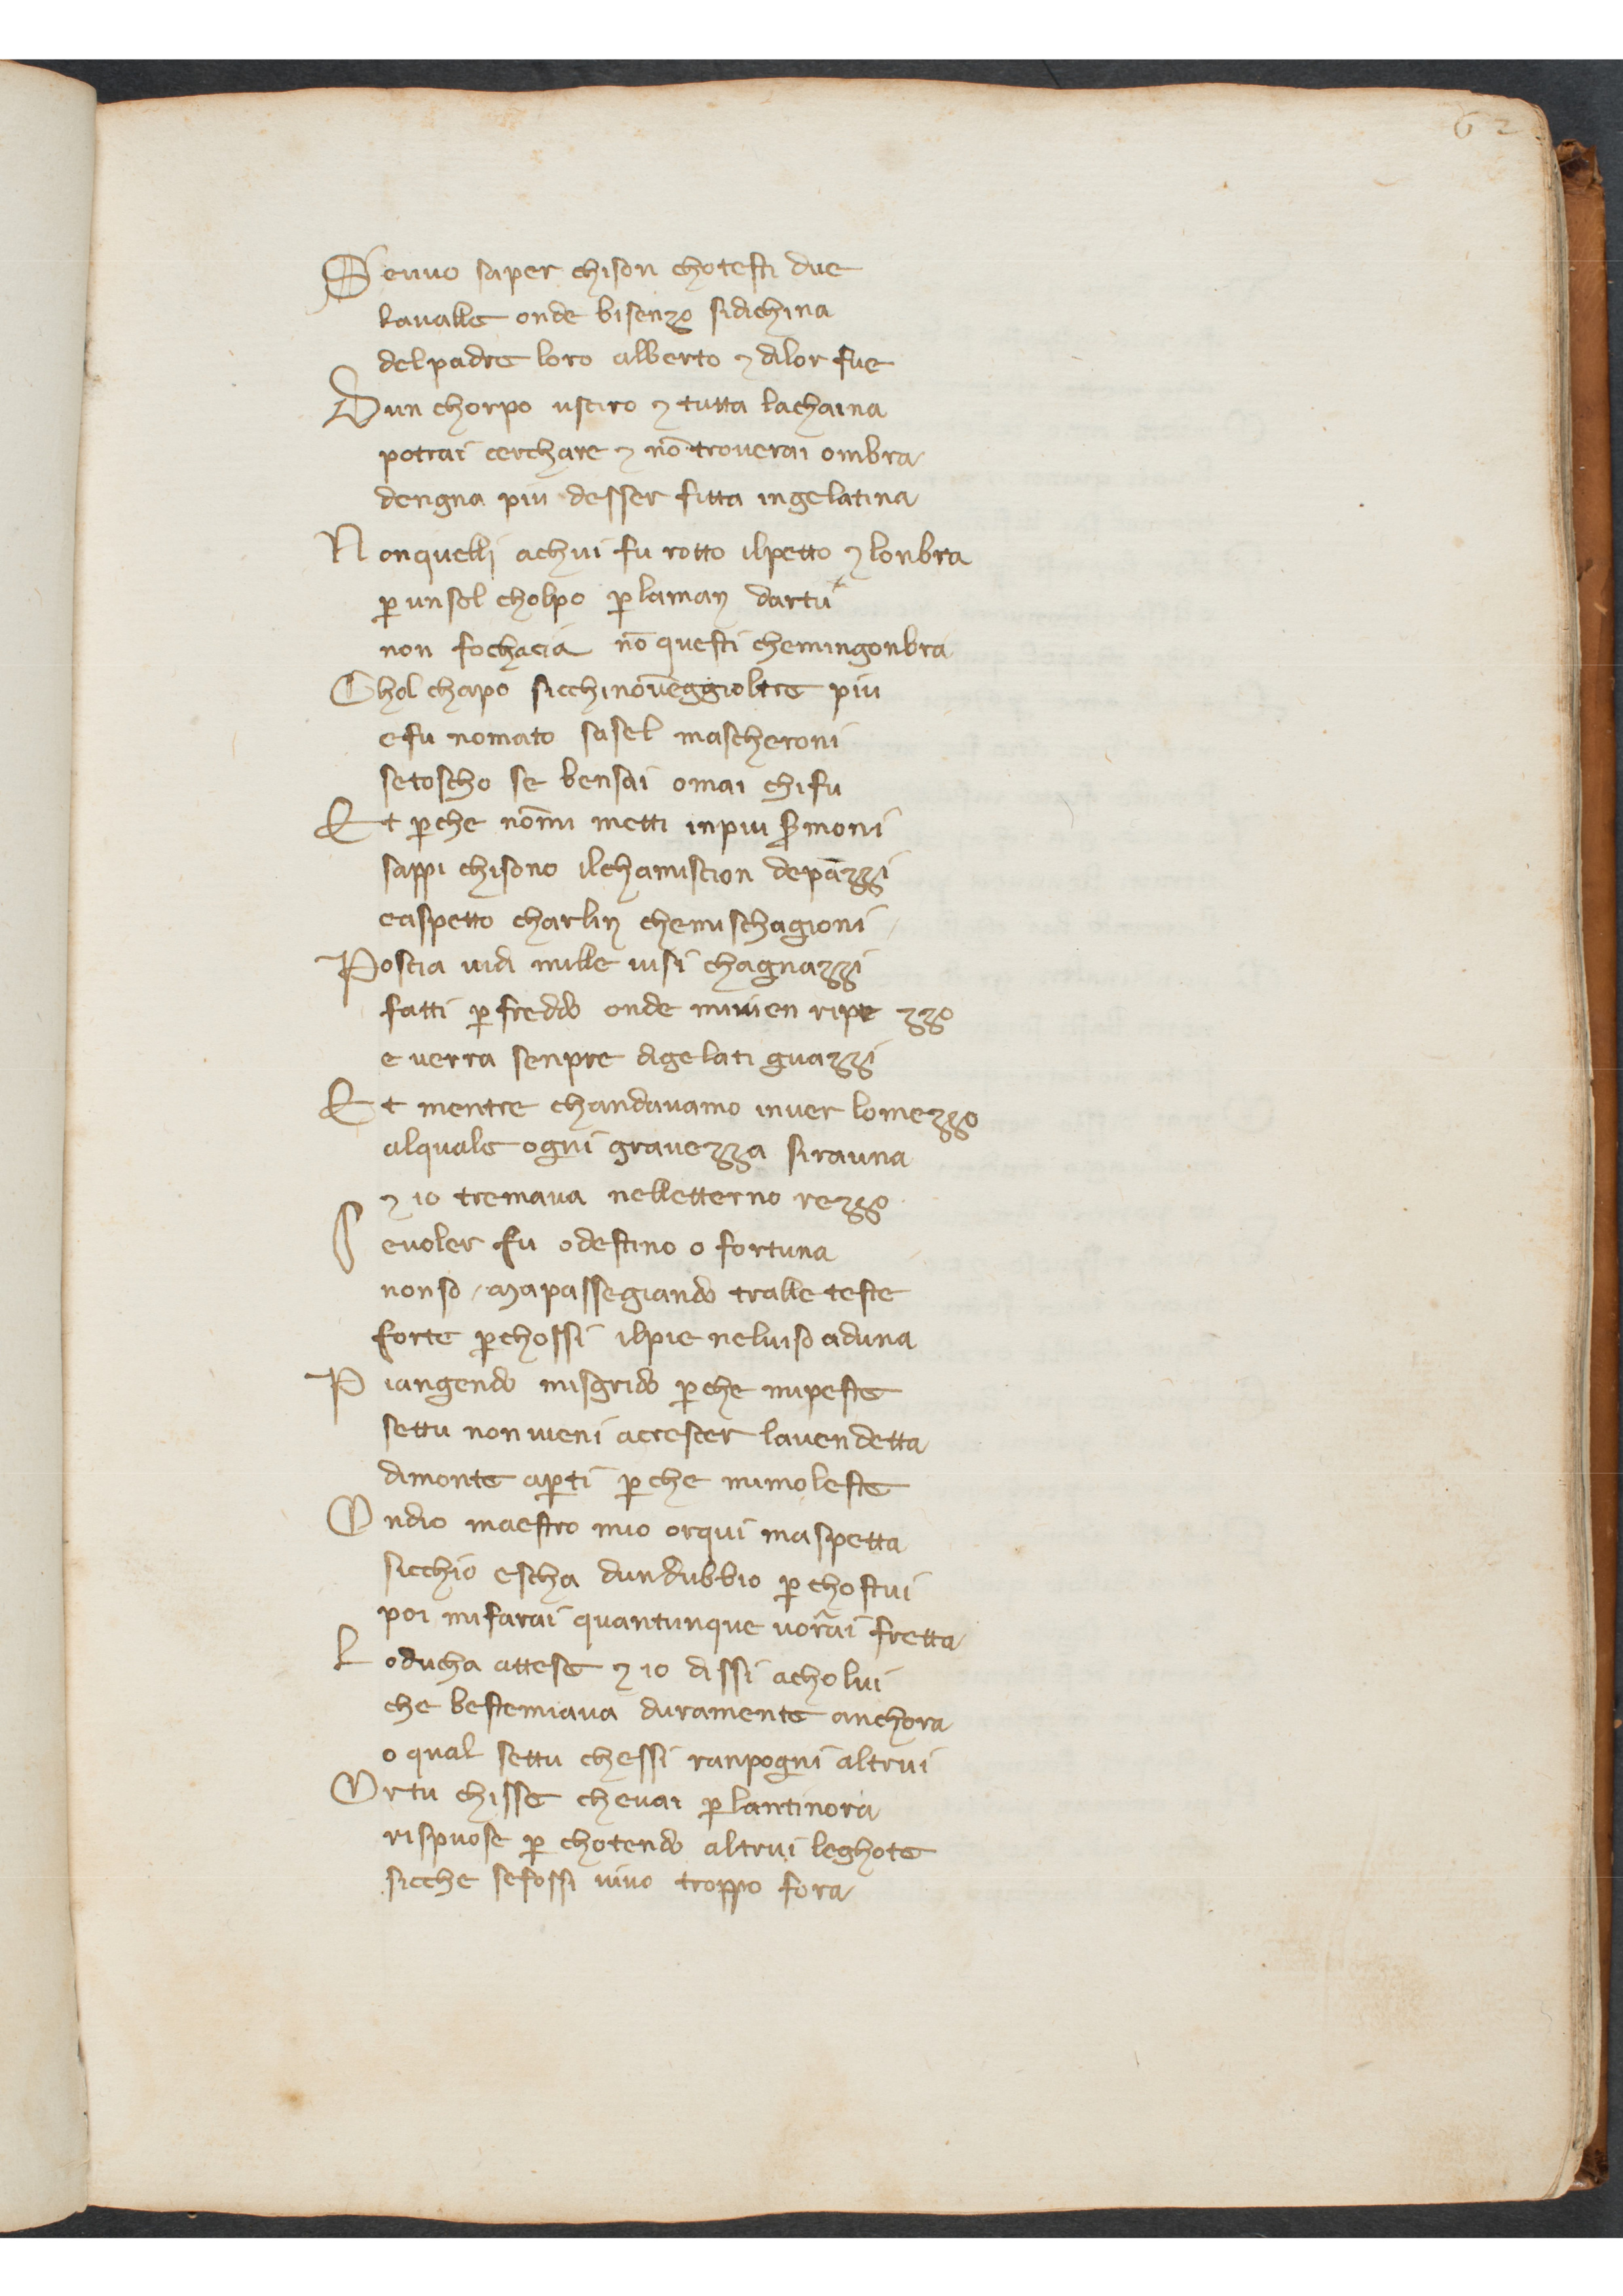 62
Senvo saper chison chotesti due
lavalle onde bisenzo sidichina
delpadre loro alberto ⁊ dilor fue
Dun chorpo usciro ⁊ tutta lachaina
potrai cerchare ⁊ nō troverai ombra
dengna piu desser fitta ingelatina
Nonquelli achui fu rotto ilpetto ⁊ lonbra
ꝑ unsel cholpo ꝑ laman dartu
non fochacia nō questi chemingonbra
Chol chapo sicchinōveggioltre piu
efu nomato sasel mascheroni
setoscho se bensai omai chifu
Et ꝑche nōmi metti inpiu s̄moni
sappi chisono ilchamiscion depazzi
easpetto charlin chemischagioni
Poscia vidi mille visi chagnazzi
fatti ꝑ freddo onde mivien ripe zzo
e verra senpre digelati guazzi
Et mentre chandavamo inver lomezzo
alquale ogni gravezza sirauna
⁊ io tremava nelletterno rezzo
Sevoler fu odestino o fortuna
nonso / mapassegiando tralle teste
forte ꝑchossi ilpie neluiso aduna
Piangendo misgrido ꝑche mipeste
settu nonvieni accrescer lavendetta
dimonte aꝑti ꝑche mimoleste
Ondio maestro mio orqui maspetta
sicchio escha dundubbio ꝑ chostui
poi mifarai quantunque vorrai fretta
Loducha attese ⁊ io dissi acholui
che bestemiava duramente anchora
o qual settu chessi ranpogni altrui
Ortu chisse chevai ꝑ lantinora
rispuose ꝑ chotendo altrui leghote
sicche sefossi vivo troppo fora